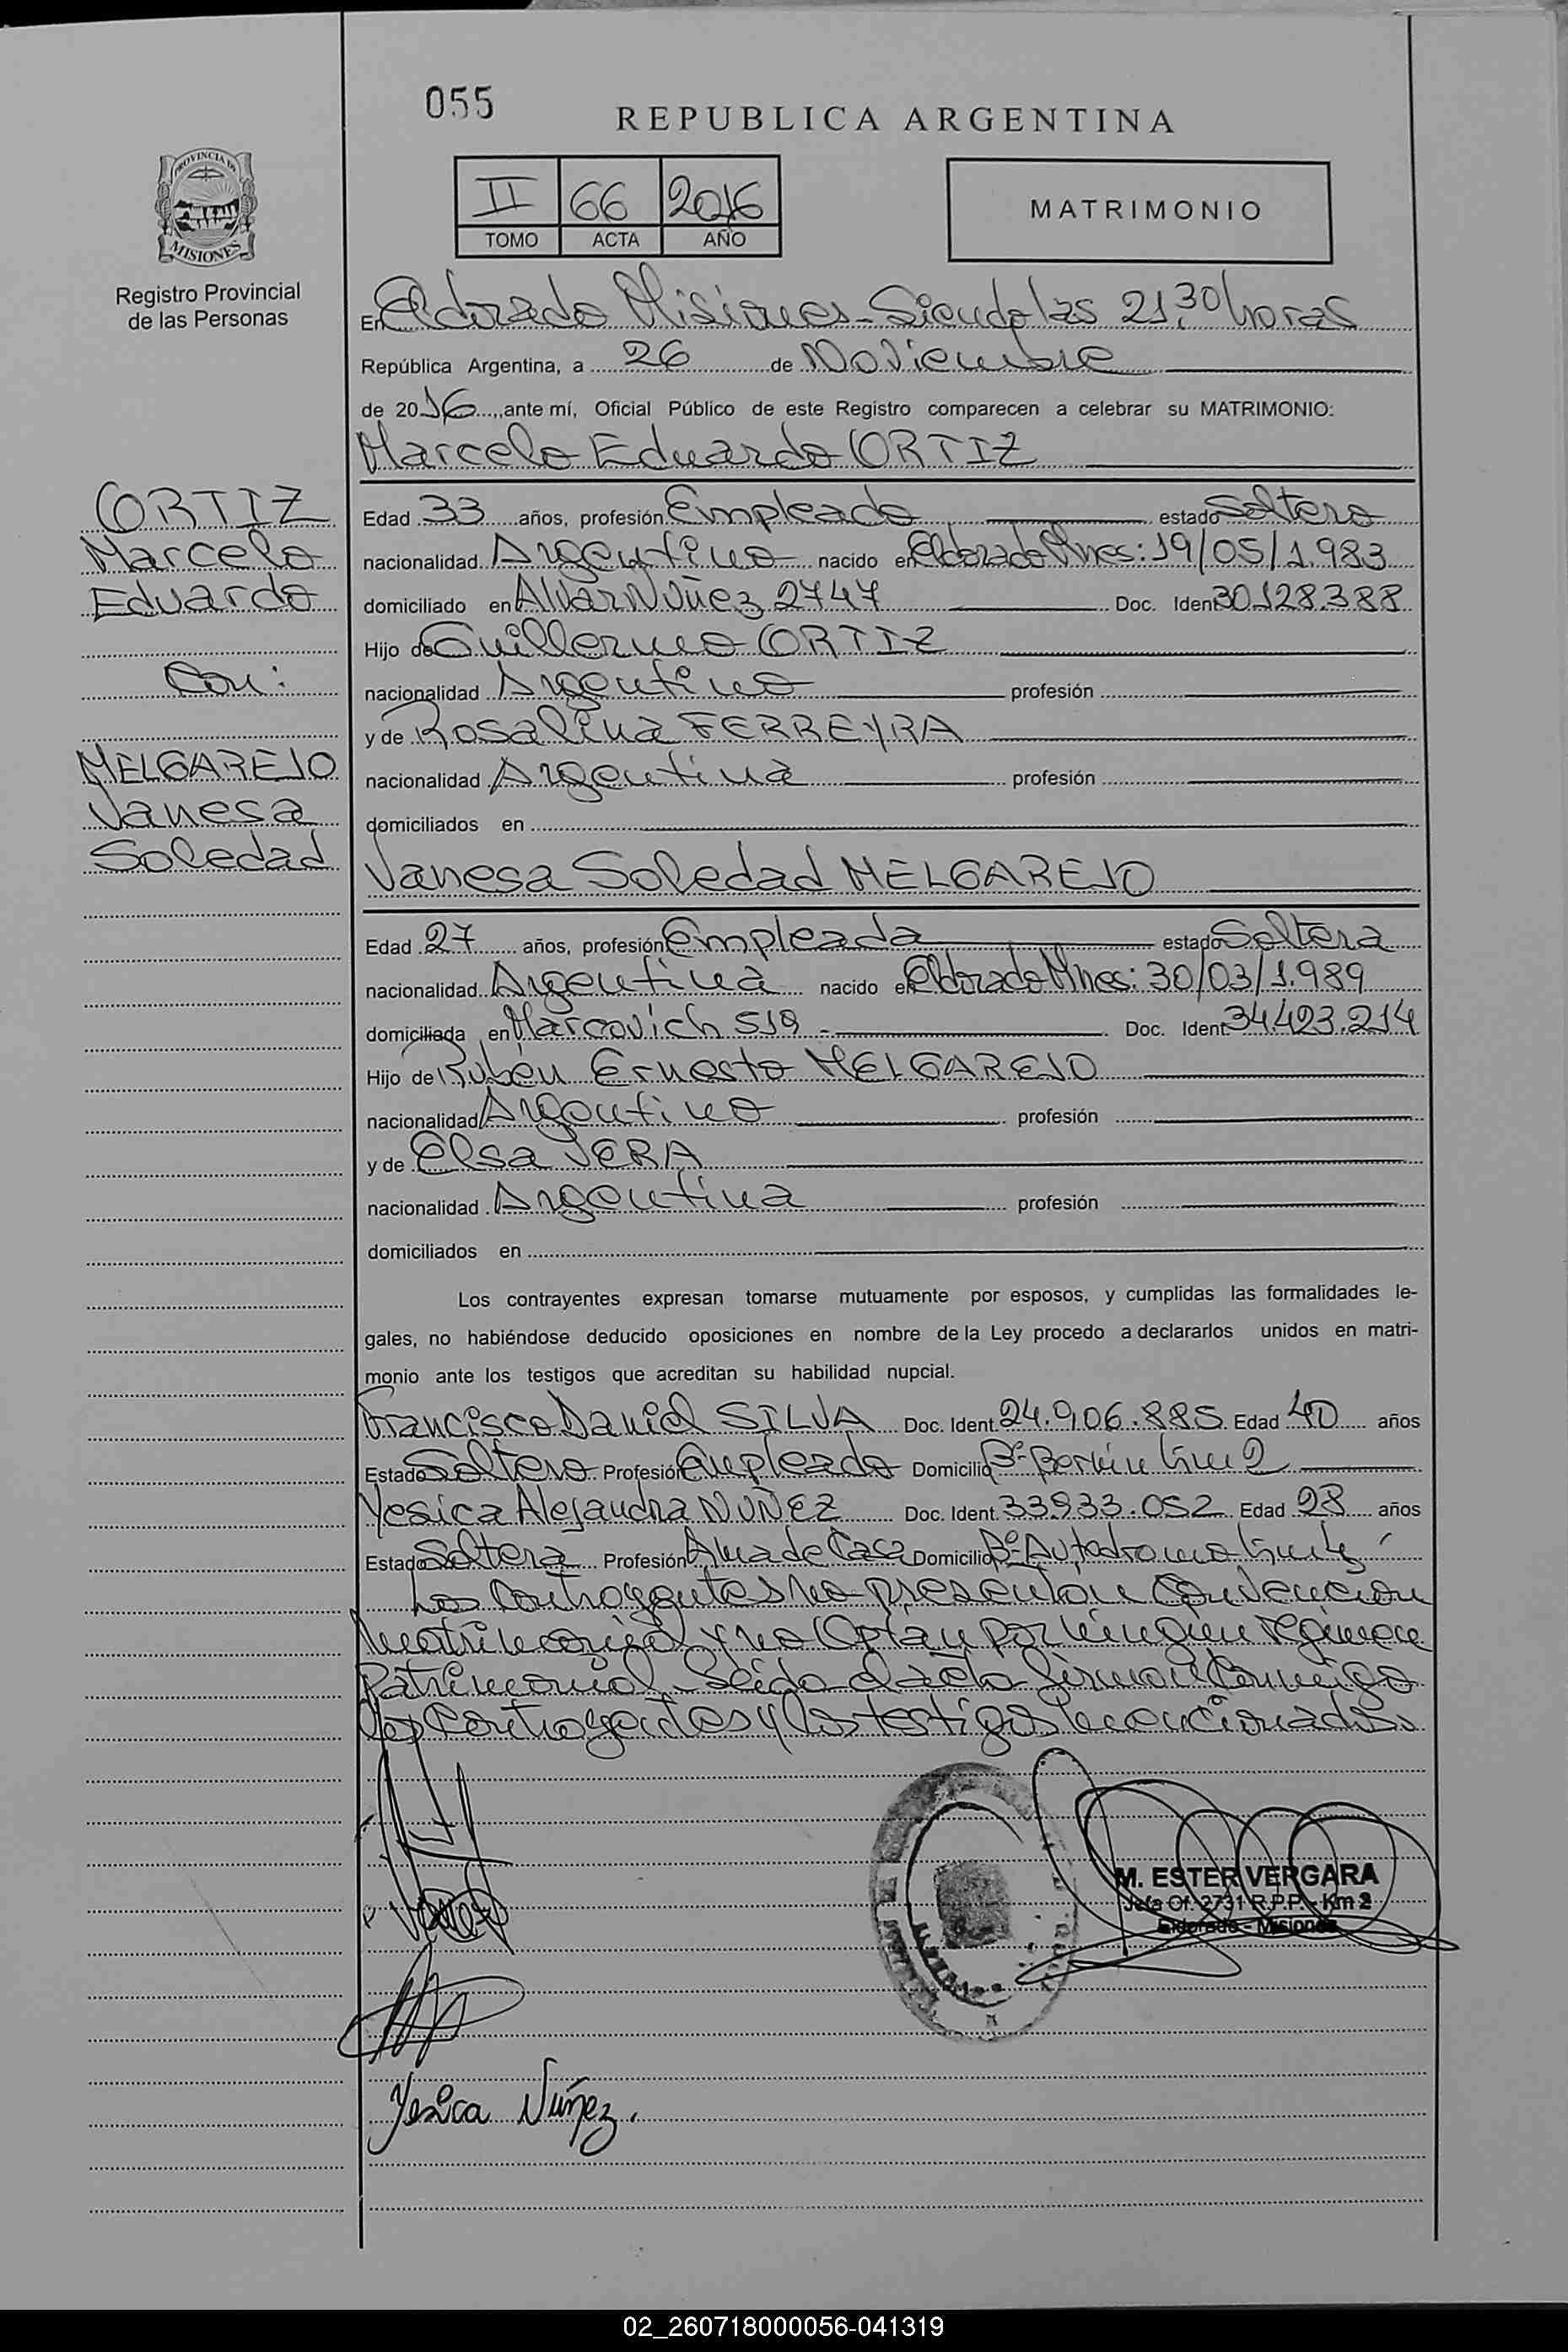 055
REPUBLICA ARGENTINA
II 66 2016
TOMO ACTA AÑO
MATRIMONIO
PROVINCIA DE
MISIONES
Registro Provincial
de las Personas
En Eldorado Misiones - Siendo las 21,30 horas
República Argentina, a 26 de Noviembre
de 2016, ante mí, Oficial Público de este Registro comparecen a celebrar su MATRIMONIO:
Marcelo Eduardo ORTIZ
ORTIZ
Marcelo
Eduardo
Con:
MELGAREJO
Vanesa
Soledad
Edad 33 años, profesión Empleado estado Soltero
nacionalidad Argentino nacido en Eldorado Mnes: 19/05/1.983
domiciliado en Alvar Núñez 2747 Doc. Ident 30.128.388
Hijo de Guillermo ORTIZ
nacionalidad Argentino profesión
y de Rosalina FERREYRA
nacionalidad Argentina profesión
domiciliados en
Vanesa Soledad MELGAREJO
Edad 27 años, profesión Empleada estado Soltera
nacionalidad Argentina nacido en Eldorado Mnes: 30/03/1.989
domiciliada en Marcovich 519 - Doc. Ident. 34.423.214
Hijo de Rubén Ernesto MELGAREJO
nacionalidad Argentino profesión
y de Elsa VERA
nacionalidad Argentina profesión
domiciliados en
Los contrayentes expresan tomarse mutuamente por esposos, y cumplidas las formalidades le-
gales, no habiéndose deducido oposiciones en nombre de la Ley procedo a declararlos unidos en matri-
monio ante los testigos que acreditan su habilidad nupcial.
Francisco Daniel SILVA Doc. Ident. 24.906.885 Edad 40 años
Estado Soltero Profesión Empleado Domicilio Bº- km 2
Yesica Alejandra NUÑEZ Doc. Ident. 33.933.052 Edad 28 años
Estado Soltera Profesión Ama de Casa Domicilio Bº- Autodromo
Los Contrayentes no presentan Convención
Matrimonial y no Optan por ningún régimen
Patrimonial. Leída el acta firman Conmigo
los Contrayentes y los testigos mencionados.
M. ESTER VERGARA
Jefa Of. 2731 R.P.P. - Km 2
Eldorado - Misiones
Yesica Núñez.
02_260718000056-041319